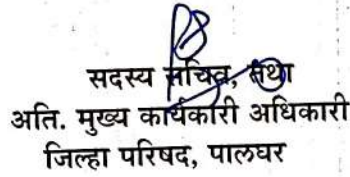 सदस्य सचिव, तथा
अति. मुख्य कार्यकारी अधिकारी
जिल्हा परिषद, पालघर